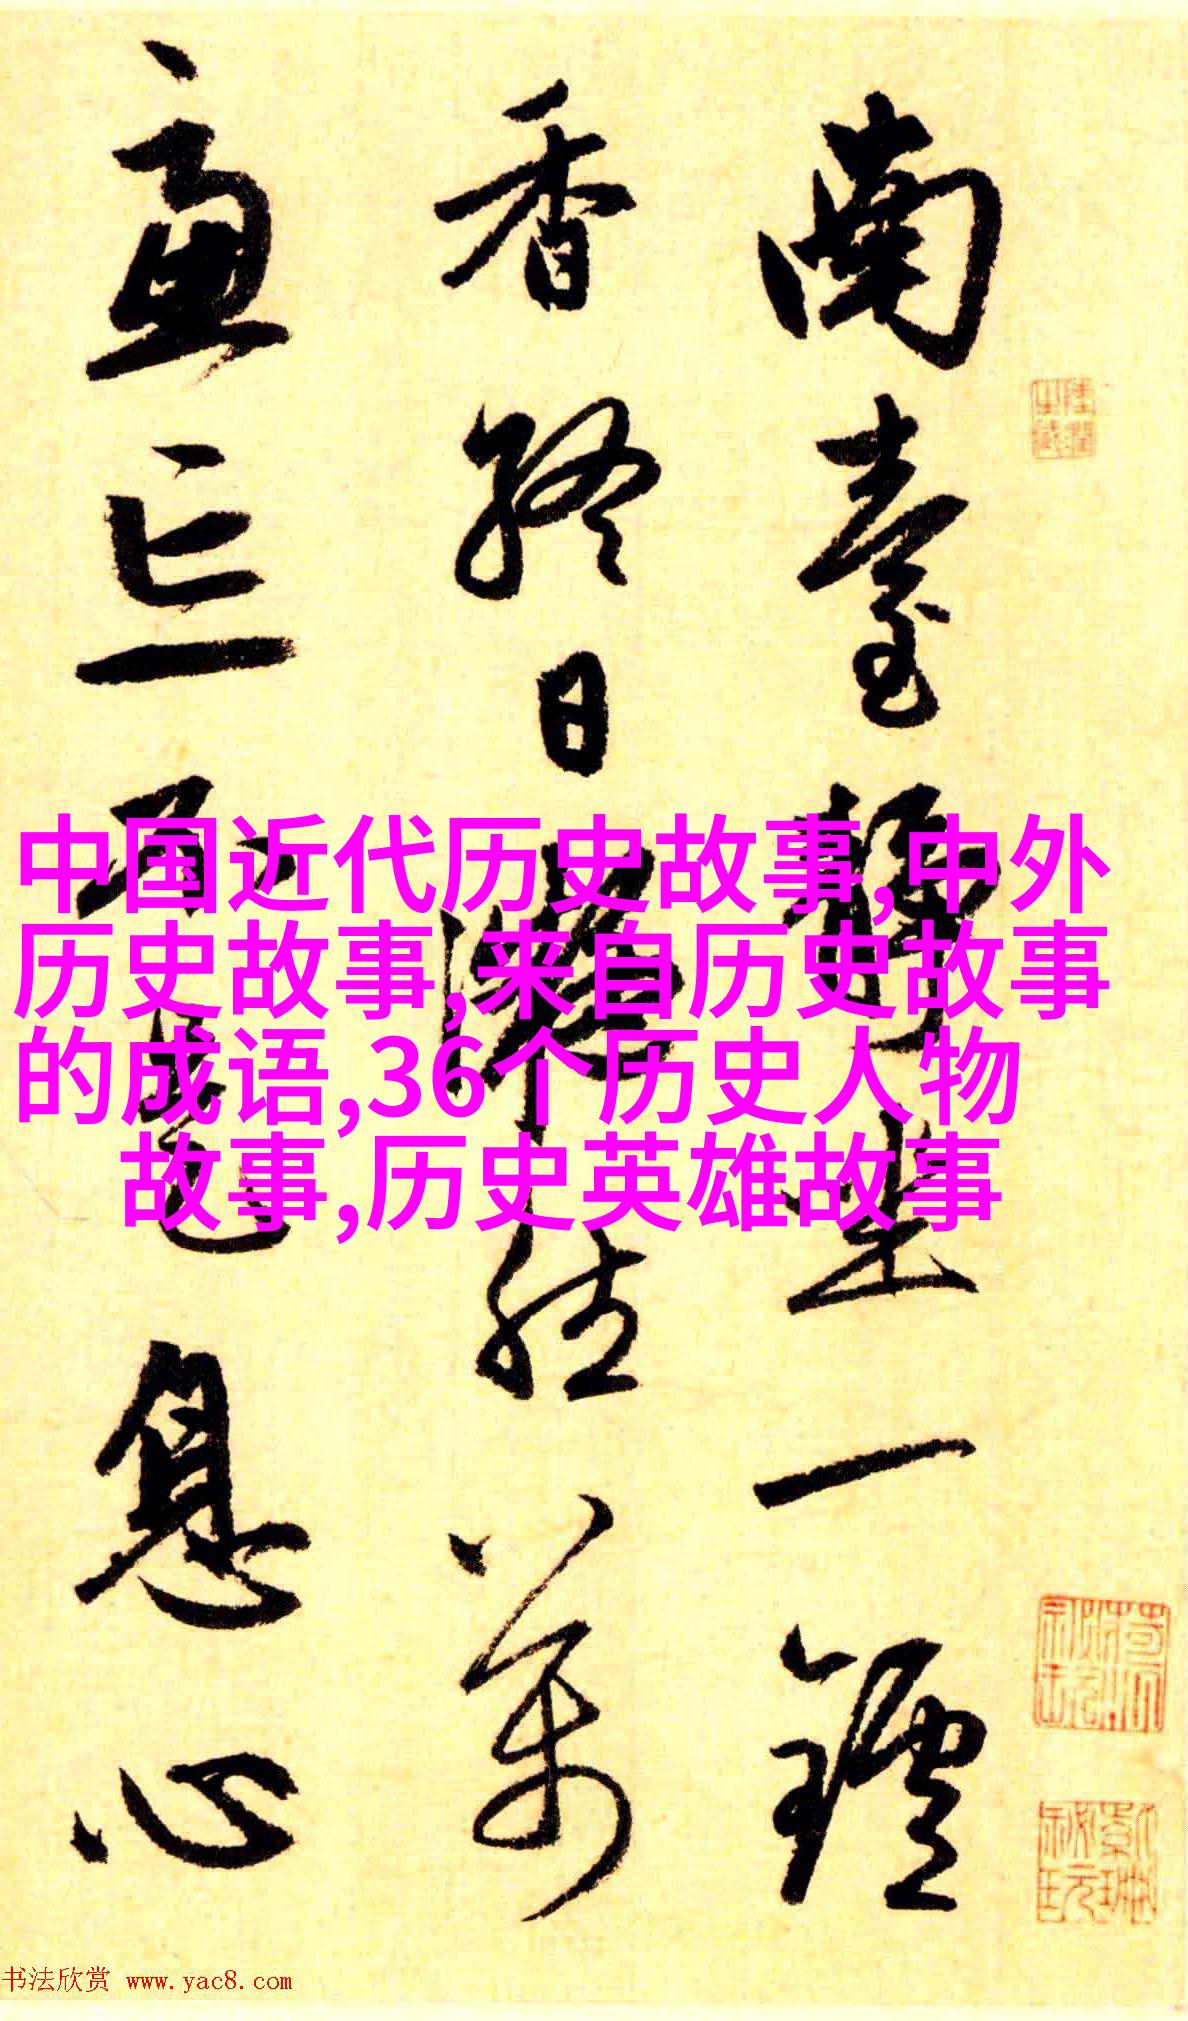 南臺靜坐一鑪
香終日凝然萬
慮忘不是息心
中国近代历史故事,中外
历史故事,来自历史故事
的成语,36个历史人物
故事,历史英雄故事
书法欣赏 www.yac8.com